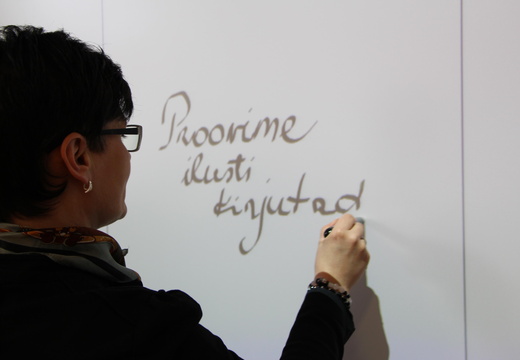 Proovime
ilusti
kirjutad